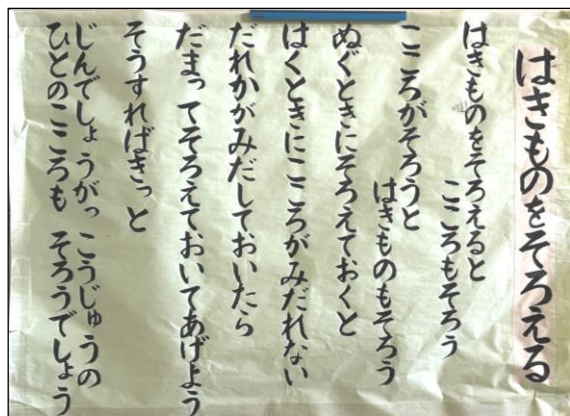 はきものをそろえる
はきものをそろえると
こころもそろう
こころがそろうと
はきものもそろう
ぬぐときにそろえておくと
はくときにこころがみだれない
だれかがみだしておいたら
だまってそろえておいてあげよう
そうすればきっと
じんでしょうがっこうじゅうの
ひとのこころも そろうでしょう